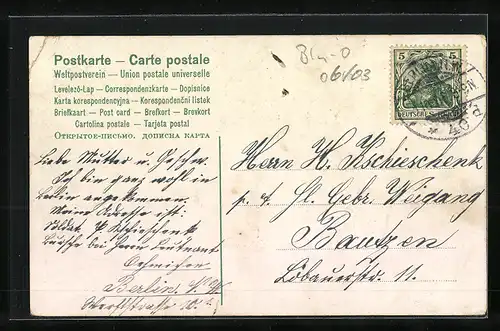 Postkarte — Carte postale
Weltpostverein — Union postale universelle
Levelező-Lap — Correspondenzkarte — Dopisnice
Karta korespondencyjna — Korespondenční lístek
Briefkaart — Post card — Brefkort — Brevkort
Cartolina postale — Tarjeta postal
Открытое-письмо. дописна карта
06V03
5 5
Liebe Mutter u. Geschw.
Ich bin ganz wohl in
Berlin angekommen.
Meine Adresse ist:
Soldat
Bursche bei Herrn Leutnant
Berlin
Herrn H. Kschieschenk
p. a. Gebr. Weigang
Bautzen
Löbauerstr. 11.